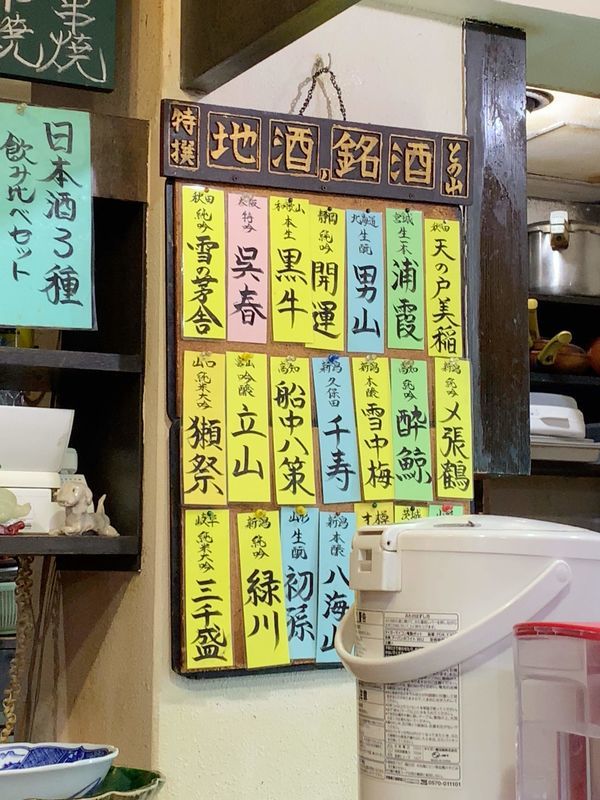 串焼
日本酒3種
飲み比べセット
特撰
地酒銘酒
との山
秋田
天の戸美稲
宮城
生一本
浦霞
北海道
生酛
男山
静岡
純吟
開運
和歌山
本生
黒牛
大阪
特吟
呉春
秋田
純吟
雪の茅舎
新潟
純吟
〆張鶴
高知
純吟
酔鯨
新潟
本醸
雪中梅
新潟
久保田
千寿
高知
船中八策
富山
吟醸
立山
山口
純米大吟
獺祭
新潟
本醸
八海山
山形
生酛
初孫
新潟
純吟
緑川
岐阜
純米大吟
三千盛
0570-011101